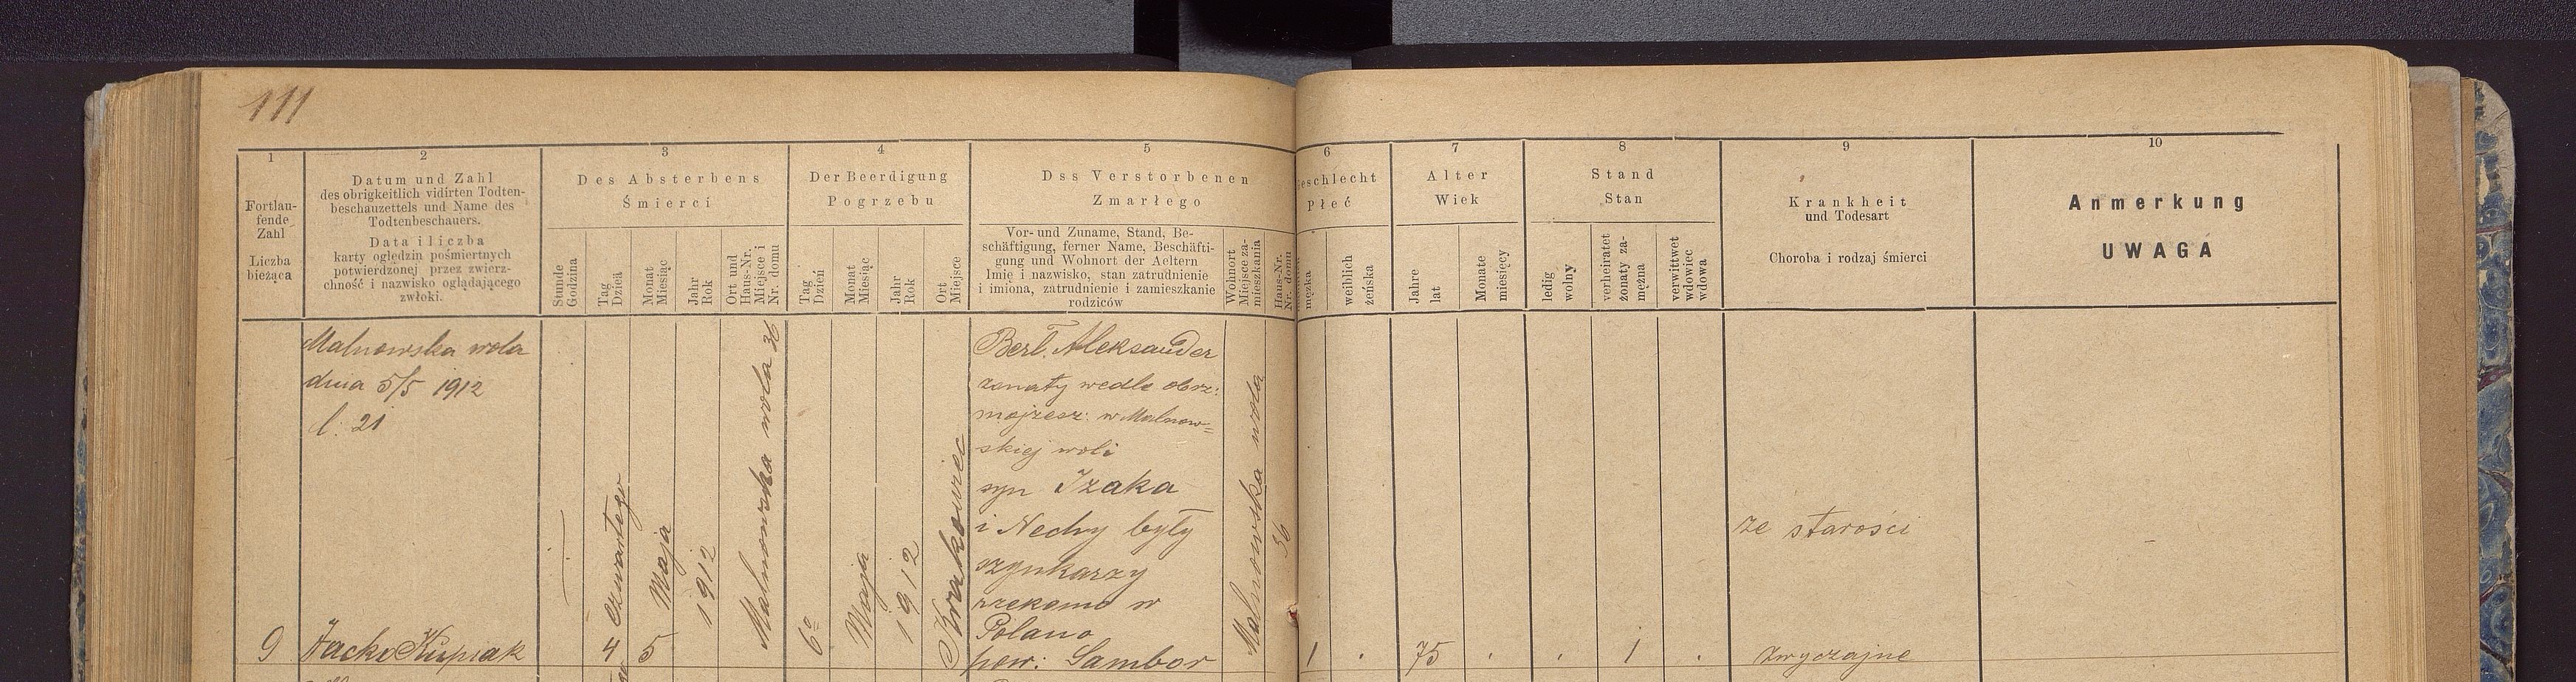 111
1
2
3
4
5
6
7
8
9
10
Fortlau-
fende
Zahl
Liczba
bieżąca
Datum und Zahl
des obrigkeitlich vidirten Todten-
beschauzettels und Name des
Todtenbeschauers.
Data i liczba
karty oględzin pośmiertnych
potwierdzonej przez zwierz-
chność i nazwisko oglądającego
zwłoki.
Des Absterbens
Śmierci
Stunde
Godzina
Tag
Dzień
Monat
Miesiąc
Jahr
Rok
Ort und
Haus-Nr.
Miejsce i
Nr. domu
Der Beerdigung
Pogrzebu
Tag
Dzień
Monat
Miesiąc
Jahr
Rok
Ort
Miejsce
Dss Verstorbenen
Zmarłego
Vor- und Zuname, Stand, Be-
schäftigung, ferner Name, Beschäfti-
gung und Wohnort der Aeltern
Imię i nazwisko, stan zatrudnienie
i imiona, zatrudnienie i zamieszkanie
rodziców
Wohnort
Miejsce za-
mieszkania
Haus-Nr.
Nr. domu
eschlecht
Płeć
męzka
weiblich
żeńska
Alter
Wiek
Jahre
lat
Monate
miesięcy
Stand
Stan
ledig
wolny
verheiratet
żonaty za-
mężna
verwittwet
wdowiec
wdowa
Krankheit
und Todesart
Choroba i rodzaj śmierci
Anmerkung
UWAGA
9
Malnowska wola
dnia 5/5 1912
l. 21
Jacko Kupiak
czwartego
4
Maja
5
1912
Malnowska wola 36
6º
Maja
1912
Krakowiec
Berl. Aleksander
żonaty wedle obrz:
mojżesz: w Malnow-
skiej woli
syn Izaka
i Nechy były
szynkarzy
rzekomo w
Polano
pow: Sambor
Malnowska wola
36
1
75
1
ze starości
zwyczajne